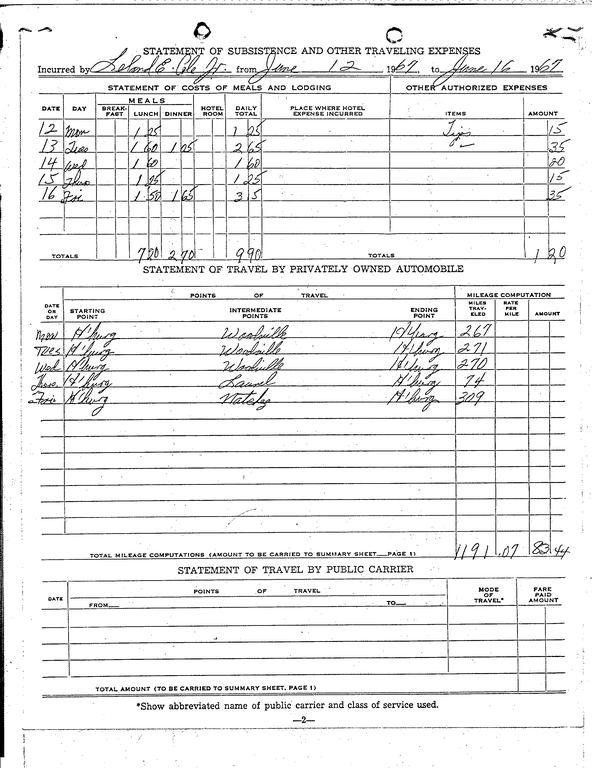 STATEMENT OF SUBSISTENCE AND OTHER TRAVELING EXPENSES
Incurred by Leland E. Cole Jr. from June 12 1967, to June 16 1967
STATEMENT OF COSTS OF MEALS AND LODGING OTHER AUTHORIZED EXPENSES
MEALS
DATE DAY BREAK-FAST LUNCH DINNER HOTEL ROOM DAILY TOTAL PLACE WHERE HOTEL EXPENSE INCURRED ITEMS AMOUNT
12 Mon 1 25 1 25 Tips 15
13 Tues 1 60 1 05 2 65 35
14 Wed 1 60 1 60 20
15 Thurs 1 25 1 25 15
16 Fri 1 50 1 65 3 15 35
TOTALS 7 20 2 70 9 90 TOTALS 1 20
STATEMENT OF TRAVEL BY PRIVATELY OWNED AUTOMOBILE
POINTS OF TRAVEL MILEAGE COMPUTATION
DATE OR DAY STARTING POINT INTERMEDIATE POINTS ENDING POINT MILES TRAV-ELED RATE PER MILE AMOUNT
Mon H'burg Woodville H'burg 267
Tues H'burg Woodville H'burg 271
Wed H'burg Woodville H'burg 270
Thurs H'burg Laurel H'burg 74
Fri H'burg Natchez H'burg 309
TOTAL MILEAGE COMPUTATIONS (AMOUNT TO BE CARRIED TO SUMMARY SHEET—PAGE 1) 1191 .07 83.44
STATEMENT OF TRAVEL BY PUBLIC CARRIER
DATE POINTS OF TRAVEL MODE OF TRAVEL* FARE PAID AMOUNT
FROM— TO—
TOTAL AMOUNT (TO BE CARRIED TO SUMMARY SHEET, PAGE 1)
*Show abbreviated name of public carrier and class of service used.
—2—